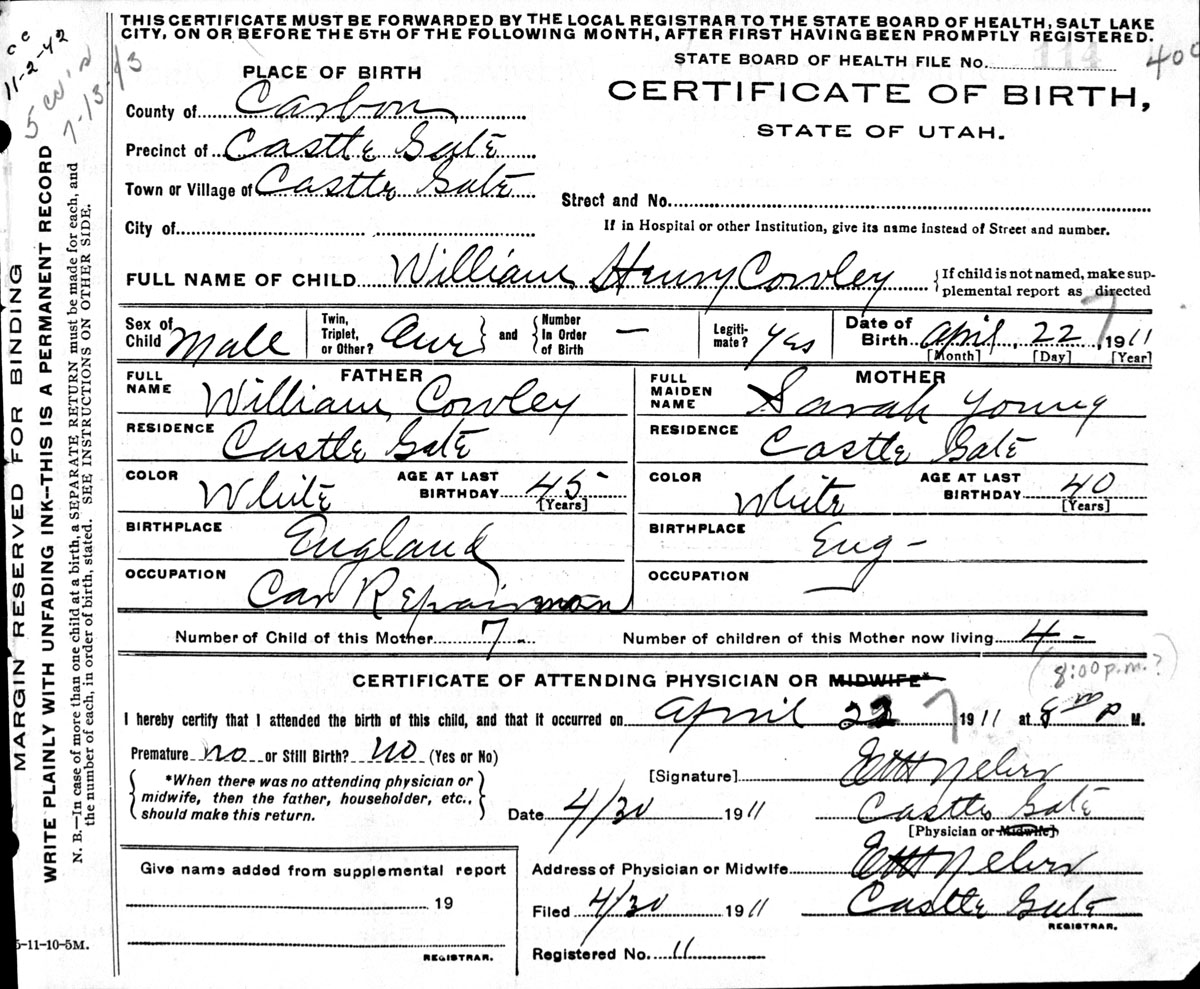 THIS CERTIFICATE MUST BE FORWARDED BY THE LOCAL REGISTRAR TO THE STATE BOARD OF HEALTH, SALT LAKE
CITY, ON OR BEFORE THE 5TH OF THE FOLLOWING MONTH, AFTER FIRST HAVING BEEN PROMPTLY REGISTERED.
STATE BOARD OF HEALTH FILE No. 114 400
CERTIFICATE OF BIRTH,
STATE OF UTAH.
PLACE OF BIRTH
County of Carbon
Precinct of Castle Gate
Town or Village of Castle Gate
Street and No.
City of
If in Hospital or other Institution, give its name instead of Street and number.
FULL NAME OF CHILD William Henry Cowley
{If child is not named, make sup-
plemental report as directed
Sex of Child Male
Twin, Triplet, or Other? } and { Number In Order of Birth —
Legiti-mate? Yes
Date of Birth April 22 7 1911
[Month] [Day] [Year]
FATHER
FULL NAME William Cowley
RESIDENCE Castle Gate
COLOR White AGE AT LAST BIRTHDAY 45 -
[Years]
BIRTHPLACE England
OCCUPATION Car Repairman
MOTHER
FULL MAIDEN NAME Sarah Young
RESIDENCE Castle Gate
COLOR White AGE AT LAST BIRTHDAY 40
[Years]
BIRTHPLACE Eng -
OCCUPATION
Number of Child of this Mother 7 -
Number of children of this Mother now living 4 -
(8:00 p.m.?)
CERTIFICATE OF ATTENDING PHYSICIAN OR MIDWIFE*
I hereby certify that I attended the birth of this child, and that it occurred on April 22 7 1911 at 8 00 P M.
Premature no or Still Birth? no (Yes or No)
{ *When there was no attending physician or
midwife, then the father, householder, etc.,
should make this return. }
[Signature]
Date 4/30 1911 Castle Gate
[Physician or Midwife]
Give name added from supplemental report
19
REGISTRAR.
Address of Physician or Midwife
Filed 4/30 1911 Castle Gate
REGISTRAR.
Registered No. 11
MARGIN RESERVED FOR BINDING
WRITE PLAINLY WITH UNFADING INK—THIS IS A PERMANENT RECORD
N. B.—In case of more than one child at a birth, a SEPARATE RETURN must be made for each, and
the number of each, in order of birth, stated. SEE INSTRUCTIONS ON OTHER SIDE.
cc
11-2-42
5-11-10-5M.